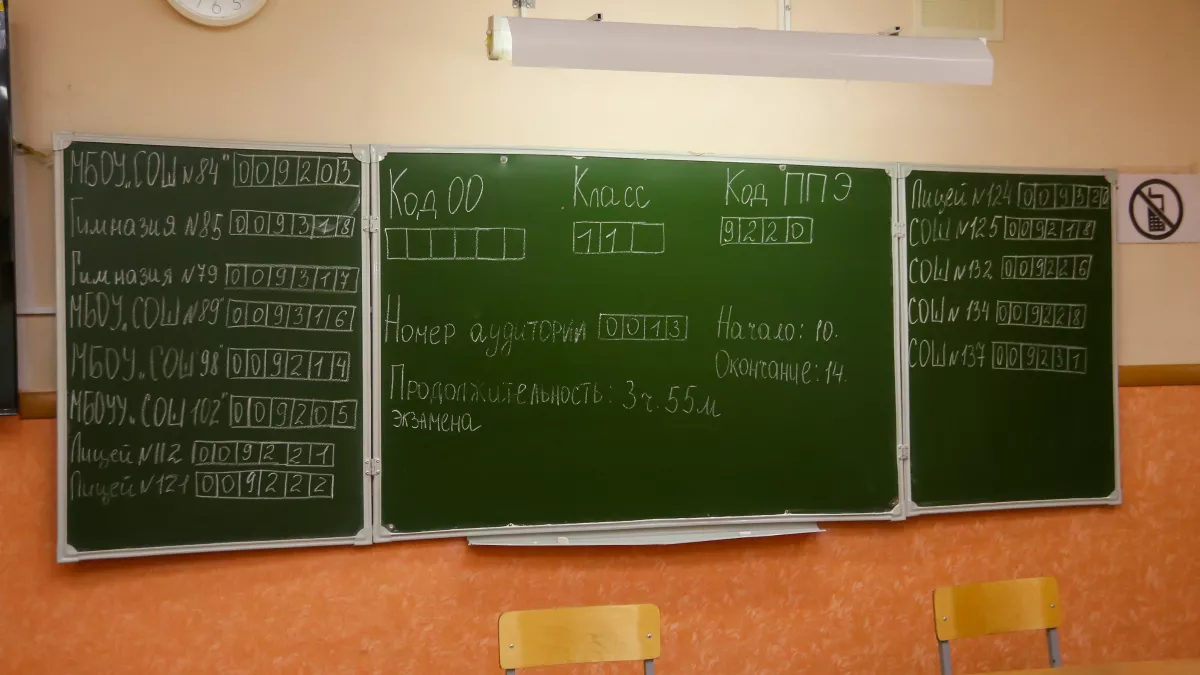 МБОУ „СОШ №84" 009203
Гимназия №85 009318
Гимназия №79 009317
МБОУ „СОШ №89" 009316
МБОУ „СОШ 98" 009214
МБОУУ „СОШ 102" 009205
Лицей №112 009221
Лицей №121 009222
Код ОО
Класс
11
Код ППЭ
9220
Номер аудитории 0013
Начало: 10.
Окончание: 14.
Продолжительность: 3ч. 55м
экзамена
Лицей №124 009320
СОШ №125 009218
СОШ №132 009226
СОШ № 134 009228
СОШ №137 009231